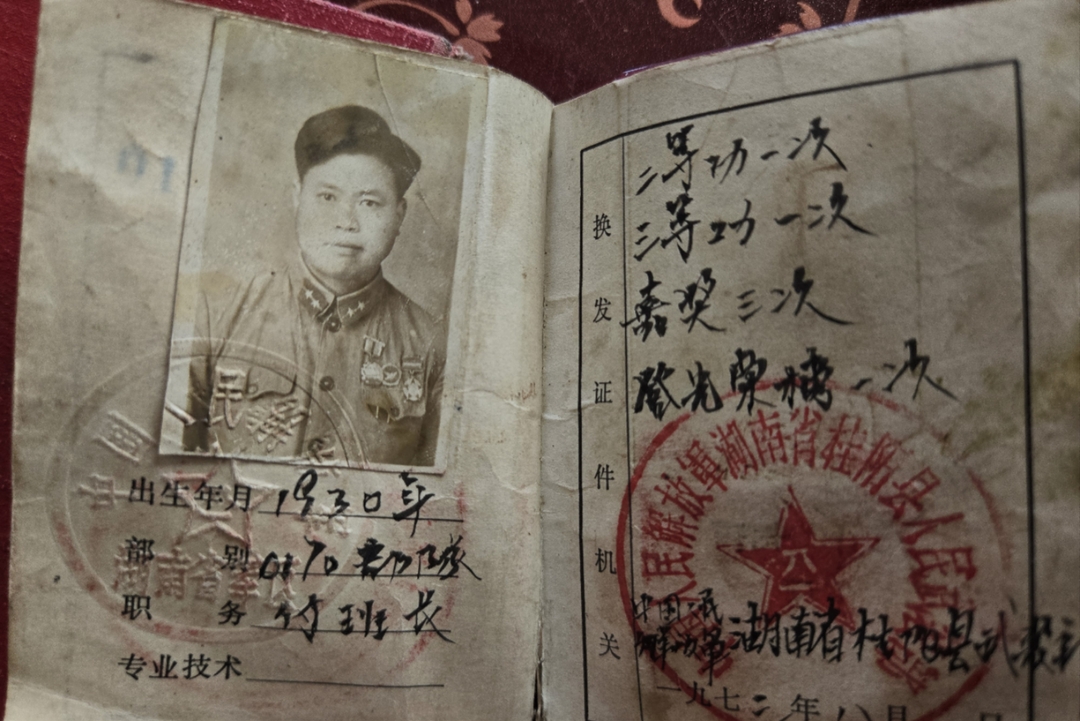 出生年月 1930年
部别 0170部队
职务 付班长
专业技术
湖南省军区
换发证件机关
二等功一次
三等功一次
嘉奖三次
登光荣榜一次
人民解放军湖南省桂阳县人民武
中国人民
解放军湖南省桂阳县武
一九七二年八月